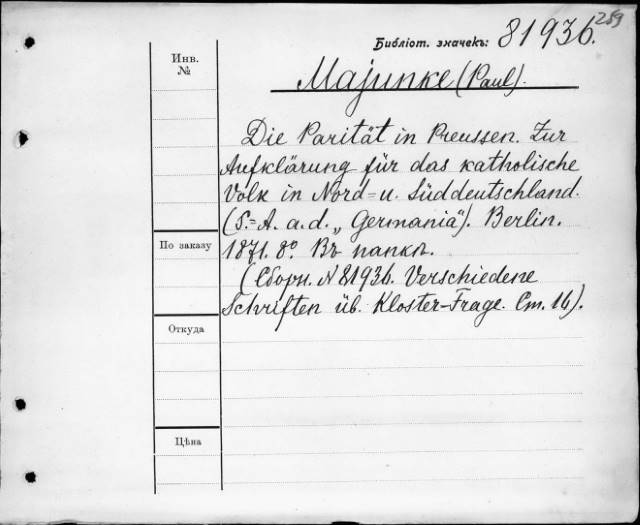 259
Библіот. значекъ: 81936.
Инв.
№
Majunke (Paul).
Die Parität in Preussen. Zur
Aufklärung für das katholische
Volk in Nord= u. Süddeutschland.
(S.=A. a. d. „Germania“). Berlin.
По заказу
1871. 8º. Въ папкѣ.
(Сборн. N 81936. Verschiedene
Schriften üb. Kloster-Frage. Ст. 16).
Откуда
Цѣна